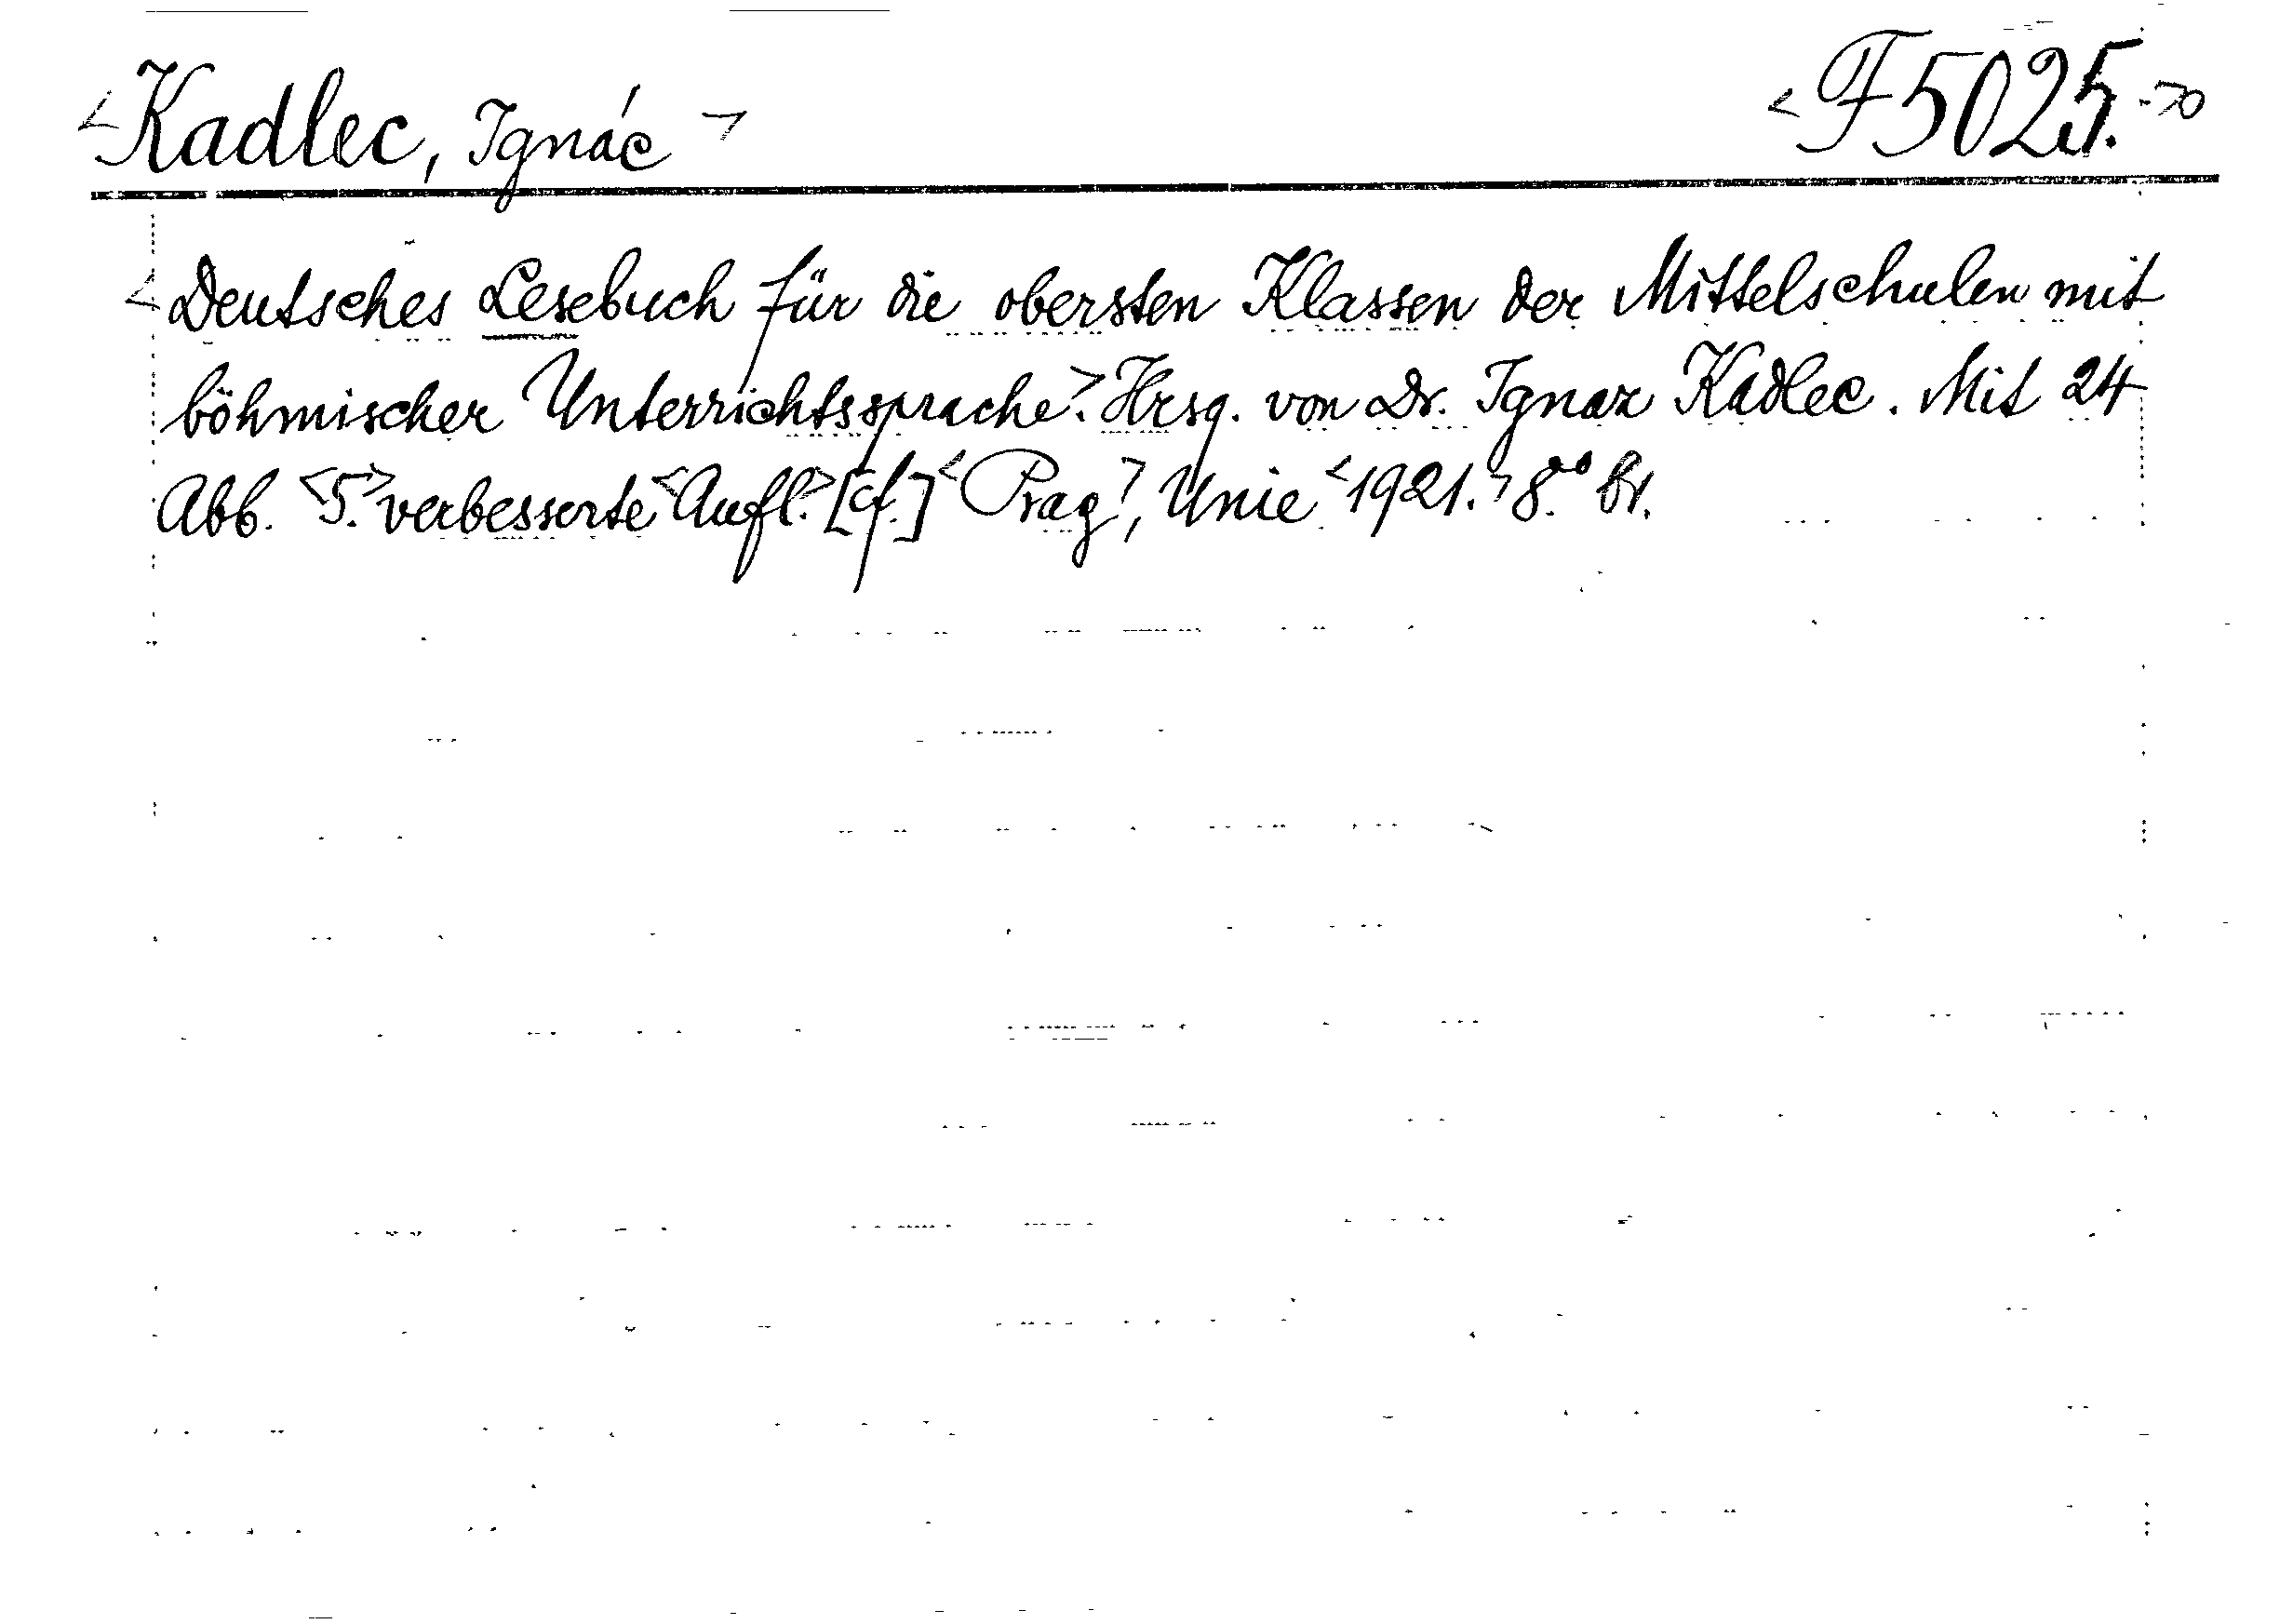 <Kadlec, Ignác> <F 5025.>
<Deutsches Lesebuch für die obersten Klassen der Mittelschulen mit
böhmischer Unterrichtssprache.> Hrsg. von Dr. Ignaz Kadlec. Mit 24
Abb. <5.> verbesserte <Aufl.> [cf.] <Prag>, Unie <1921.> 8.° br.